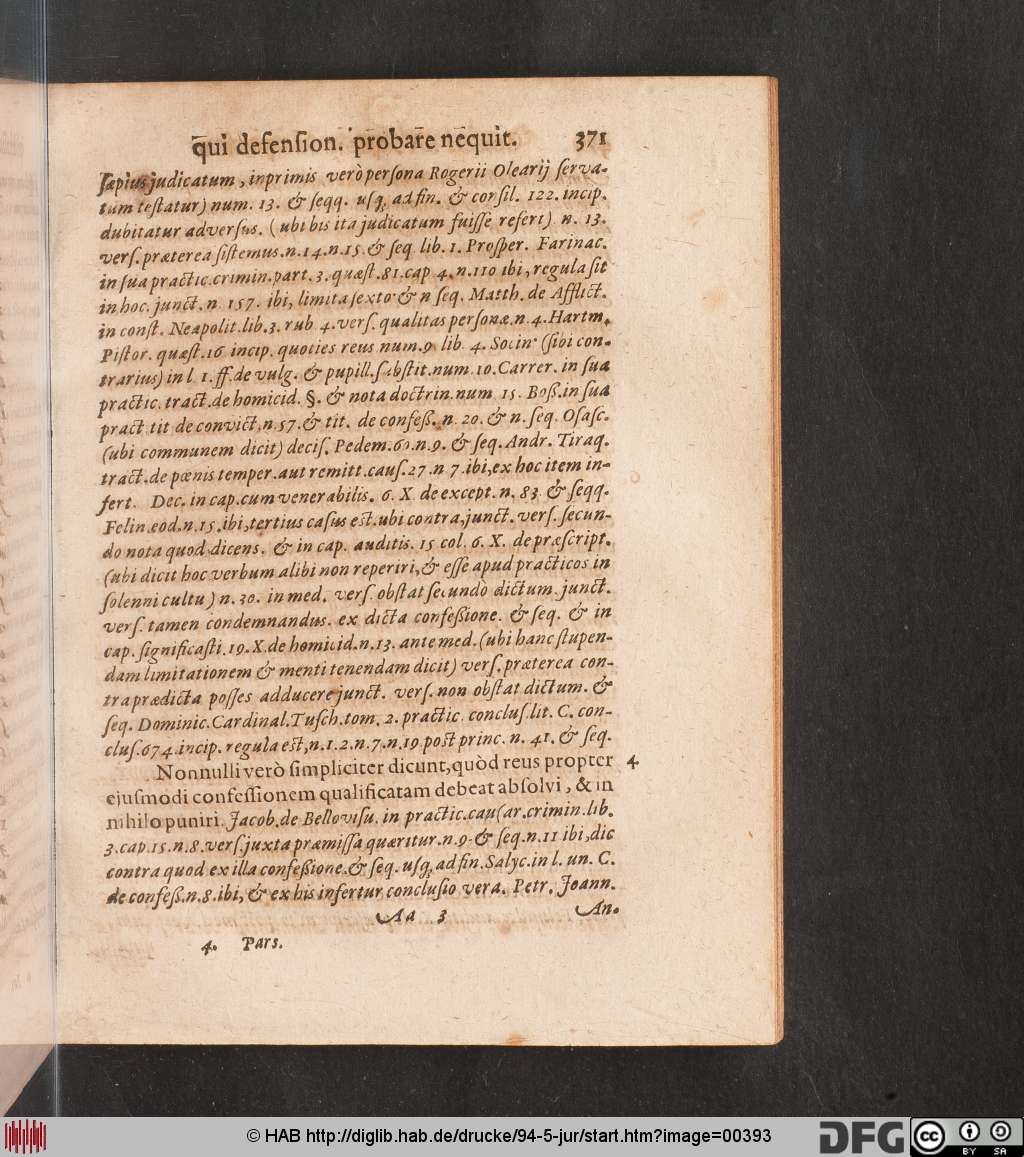 qui defension. probare nequit. 371
sæpius judicatum, inprimis verò persona Rogerii Olearij serva-
tum testatur) num. 13. & seqq. usq; ad fin. & consil. 122. incip.
dubitatur adversus. (ubi bis ita judicatum fuisse refert) n. 13.
vers. præterea sistemus. n. 14. n. 15. & seq. lib. 1. Prosper. Farinac.
in sua practic. crimin. part. 3. quæst. 81. cap. 4. n. 110 ibi, regula sit
in hoc. junct. n. 157. ibi, limita sexto & n seq. Matth. de Afflict.
in const. Neapolit. lib. 3. rub. 4. vers. qualitas personæ. n. 4. Hartm.
Pistor. quæst. 16. incip. quoties reus num. 9. lib. 4. Socin. (sibi con-
trarius) in l. 1. ff. de vulg. & pupill. substit. num. 10. Carrer. in sua
practic. tract. de homicid. §. & nota doctrin. num. 15. Boß. in sua
pract. tit de convict. n. 57. & tit. de confeß. n. 20. & n. seq. Osasc.
(ubi communem dicit) decis. Pedem. 60. n. 9. & seq. Andr. Tiraq.
tract. de pœnis temper. aut remitt. caus. 27. n 7. ibi, ex hoc item in-
fert. Dec. in cap. cum venerabilis. 6. X. de except. n. 83. & seqq.
Felin. eod. n. 15. ibi, tertius casus est. ubi contra, junct. vers. secun-
do nota quod dicens. & in cap. auditis. 15 col. 6. X. de præscript.
(ubi dicit hoc verbum alibi non reperiri, & esse apud practicos in
solenni cultu) n. 30. in med. vers. obstat secundò dictum. junct.
vers. tamen condemnandus. ex dicta confeßione. & seq. & in
cap. significasti. 19. X. de homicid. n. 13. ante med. (ubi hanc stupen-
dam limitationem & menti tenendam dicit) vers. præterea con-
tra prædicta posses adducere junct. vers. non obstat dictum. &
seq. Dominic. Cardinal. Tusch. tom. 2. practic. conclus. lit. C. con-
clus. 674. incip. regula est, n. 1. 2. n. 7. n. 19. post princ. n. 41. & seq.
Nonnulli verò simpliciter dicunt, quòd reus propter 4
ejusmodi confessionem qualificatam debeat absolvi, & in
nihilo puniri. Jacob. de Bellovisu. in practic. causar. crimin. lib.
3. cap. 15. n. 8. vers. juxta præmissa quæritur. n. 9. & seq. n. 11 ibi, dic
contra quod ex illa confeßione. & seq. usq; ad fin. Salyc. in l. un. C.
de confeß. n. 8. ibi, & ex his infertur conclusio vera. Petr. Joann.
Aa 3 An.
4. Pars.
© HAB http://diglib.hab.de/drucke/94-5-jur/start.htm?image=00393
DFG
cc BY SA